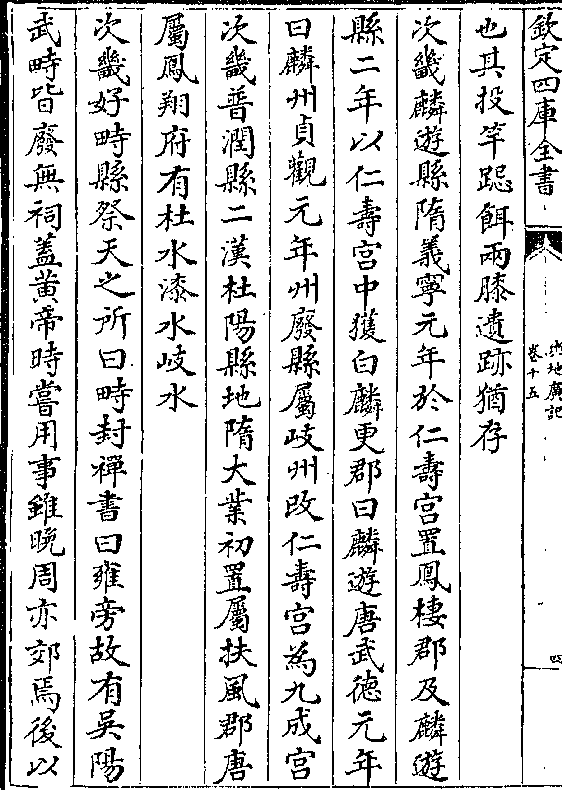 欽定四庫全書
輿地廣記
卷十五
四
也其投竿跽餌兩膝遺跡猶存
次畿麟遊縣隋義寧元年於仁壽宫置鳳棲郡及麟遊
縣二年以仁壽宫中獲白麟更郡曰麟遊唐武德元年
曰麟州貞觀元年州廢縣屬岐州改仁壽宫為九成宫
次畿普潤縣二漢杜陽縣地隋大業初置屬扶風郡唐
屬鳳翔府有杜水漆水岐水
次畿好畤縣祭天之所曰畤封禪書曰雍旁故有吳陽
武畤皆廢無祠蓋黄帝時嘗用事雖晚周亦郊焉後以